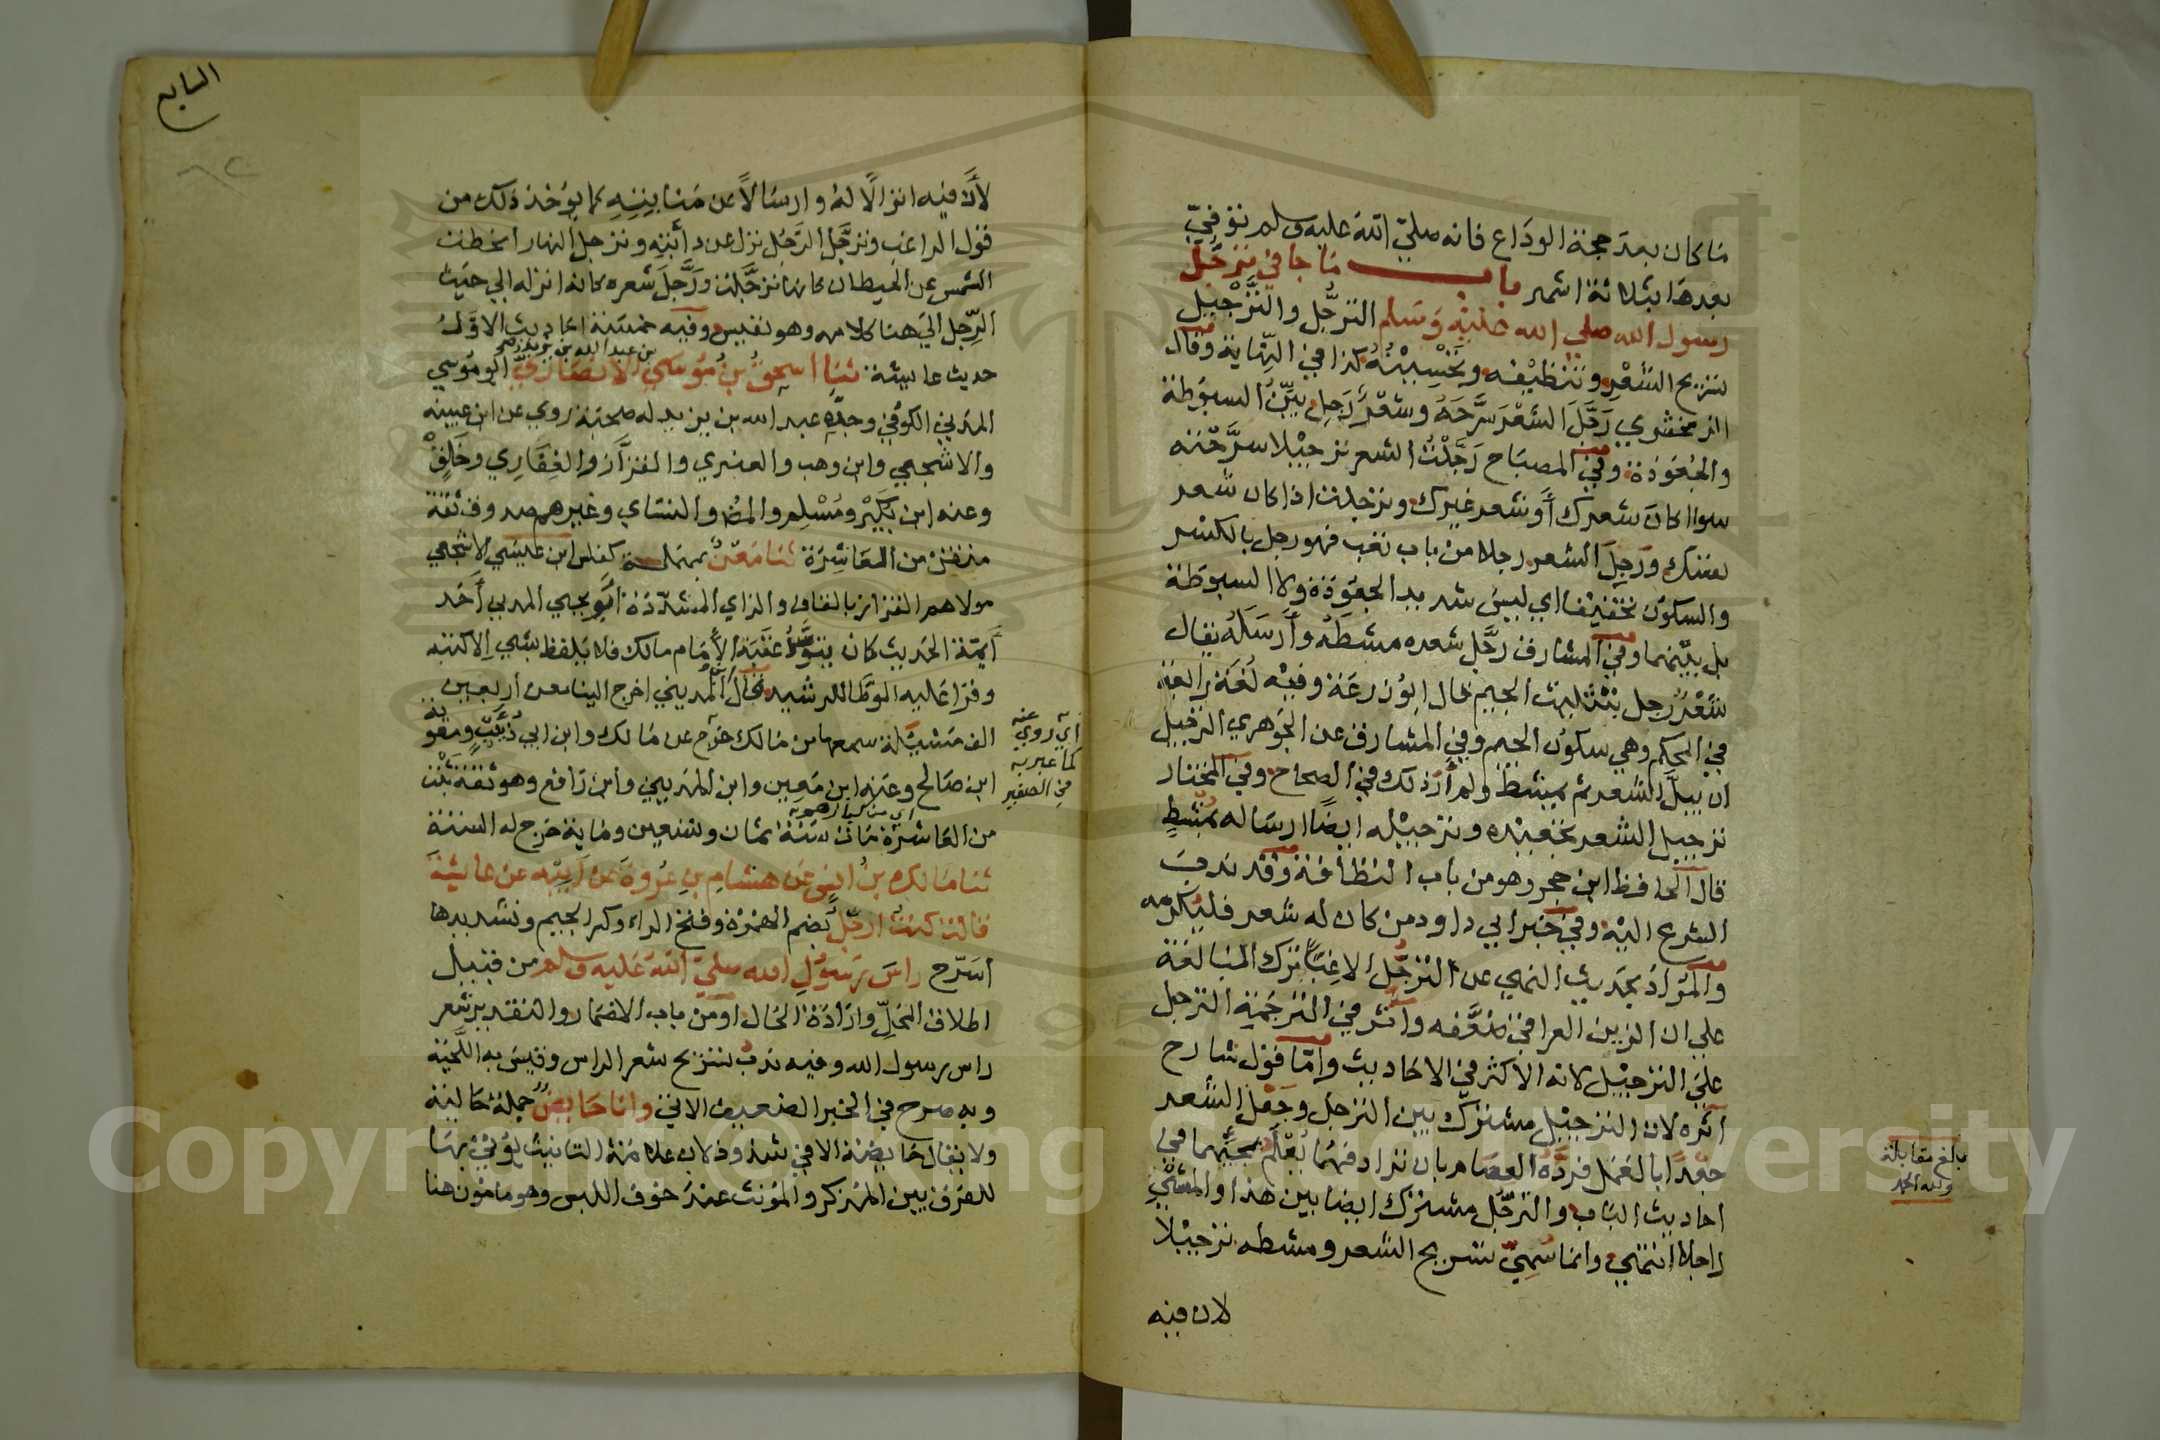 ما كان بعد حجة الوداع فانه صلي الله عليه وسلم توفي
بعدها بثلاثة اشهر باب ما جا في ترجل
رسول الله صلي الله عليه وسلم الترجُّل والتَّرْجيل
تسريح الشَّعْر وتنظيفه وتَحْسِيْنُهُ كذا في النهاية وقال
الزمخشري رَجَّلَ الشَعْرَ سَرَّحَهُ وشعْرٌ رَجِل بيِّنُ السبوطة
والجعودة وفي المصباح رَجَّلْتُ الشعر ترجيلا سرَّحْته
سوا كان شعرك أو شعر غيرك وترجلت اذا كان شعر
نفسك ورَجِلَ الشعر رجلا من باب تعب فهو رجل بالكسر
والسكون تخفيفا اي ليس شديد الجعودة ولا السبوطة
بل بينهما وفي المشارق رَجَّل شعره مشَطَه وأرسَلَه يقال
شَعْرٌ رجل بتثليث الجيم قال ابو زرعة وفيه لغة رابعة
في المحكم وهي سكون الجيم وفي المشارق عن الجوهري الترجيل
ان يبلَّ الشعر ثم يمشط ولم أر ذلك في الصحاح وفي المختار
ترجيل الشعر تجعيده وترجيله ايضًا ارساله بمُشْطٍ
قال الحافظ ابن حجر وهو من باب النظافة وقد ندب
الشرع اليه وفي خبر ابي داود من كان له شعر فليكرمه
والمراد بحديث النهي عن الترجُّل الا غِبًّا ترك المبالغة
علي ان الزين العراقي ضعَّفه وآثر في الترجمة الترجل
علي الترجيل لانه الاكثر في الاحاديث واما قول شارح
آثره لان الترجيل مشترك بين الترجل وجعْل الشعر
جعْدًا بالعمل فردَّه العصام بان ترادفهما يُعْلَم بمجيّهما في
احاديث الباب والترجُّل مشترك ايضا بين هذا والمشي
راجلا انتهي وانما سُمِّيَ تسريح الشعر ومشطه ترجيْلا
لان فيه
بلغ مقابلة
ولله الحمد
السابع
لأنَّ فيه انزالًا له وارسَالًا عن منابتِهِ كما يؤخذ ذلك من
قول الراغب وترجَّل الرَّجُل نزل عن دابته وترجل النهار انحطت
الشمس عن الحيطان كانها ترجَّلت ورَجَّلَ شعره كانه انزله الي حيث
الرِّجل الي هنا كلامه وهو نفيس وفيه خمسة احاديث الاوَّل
حديث عايشة ثنا اسحق بن مُوسي الانصاري ابو موسي
بن عبد الله بن يزيد صح
المدني الكوفي وجدّه عبد الله بن يزيد له صحبة روي عن ابن عيينة
والاشجعي وابن وهب والعنبري والقزَّاز والغِفَاري وخَلْقٍ
وعنه ابن بكيْر ومُسْلم والمص والنساي وغيرهم صدوق ثقة
متقن من العاشرة ثنا مَعْنٌ بمهملة كفلس ابن عيسي الاشجعي
مولاهم القزاز بالقاف والزاي المشدّدة ابو يحيي المدني أحد
أيمة الحديث كان يتوسَّد عتبة الأمام مالك فلا يلفظ بشي الا كتبه
وقرا عليه الموطا للرشيد قال ابن المديني اخرج الينا معن اربعين
الف مسئلة سمعها من مالك خرَّج عن مالك وابن ابي ذئب ومعوية
ابن صَالح وعنه ابن معين وابن المديني وابن رافع وهو ثقة ثبت
من العاشرة مات سنة ثمان وتسعين وماية خرج له الستة
أي روي عنه
كما عبر به
في الصغير
ثنا مَالك بنُ انس عَن هشام بن عُروةَ عَن أبيه عن عايشةَ
قالت كنتُ أرجّلُ بضم الهمزة وفتح الراء وكسر الجيم وتشديدها
اسَرّح راسَ رسُولِ الله صليّ اللهُ عَليه وسلم من قبيل
اطلاق المحَلِّ وارَادَة الحال او من باب الاضمار والتقدير شعر
راس رسول الله وفيه ندب تسريح شعر الراس وقيسَ به اللّحية
وبه صرح في الخبر الضعيف الاتي وانا حَايضٌ جملة حَالية
ولا يقال حايضة الا في شذوذ لان علامة التانيث يؤتي بها
للفرق بين المذكر والمؤنث عند خوف اللبس وهو مامون هنا
Copyright © King Saud University